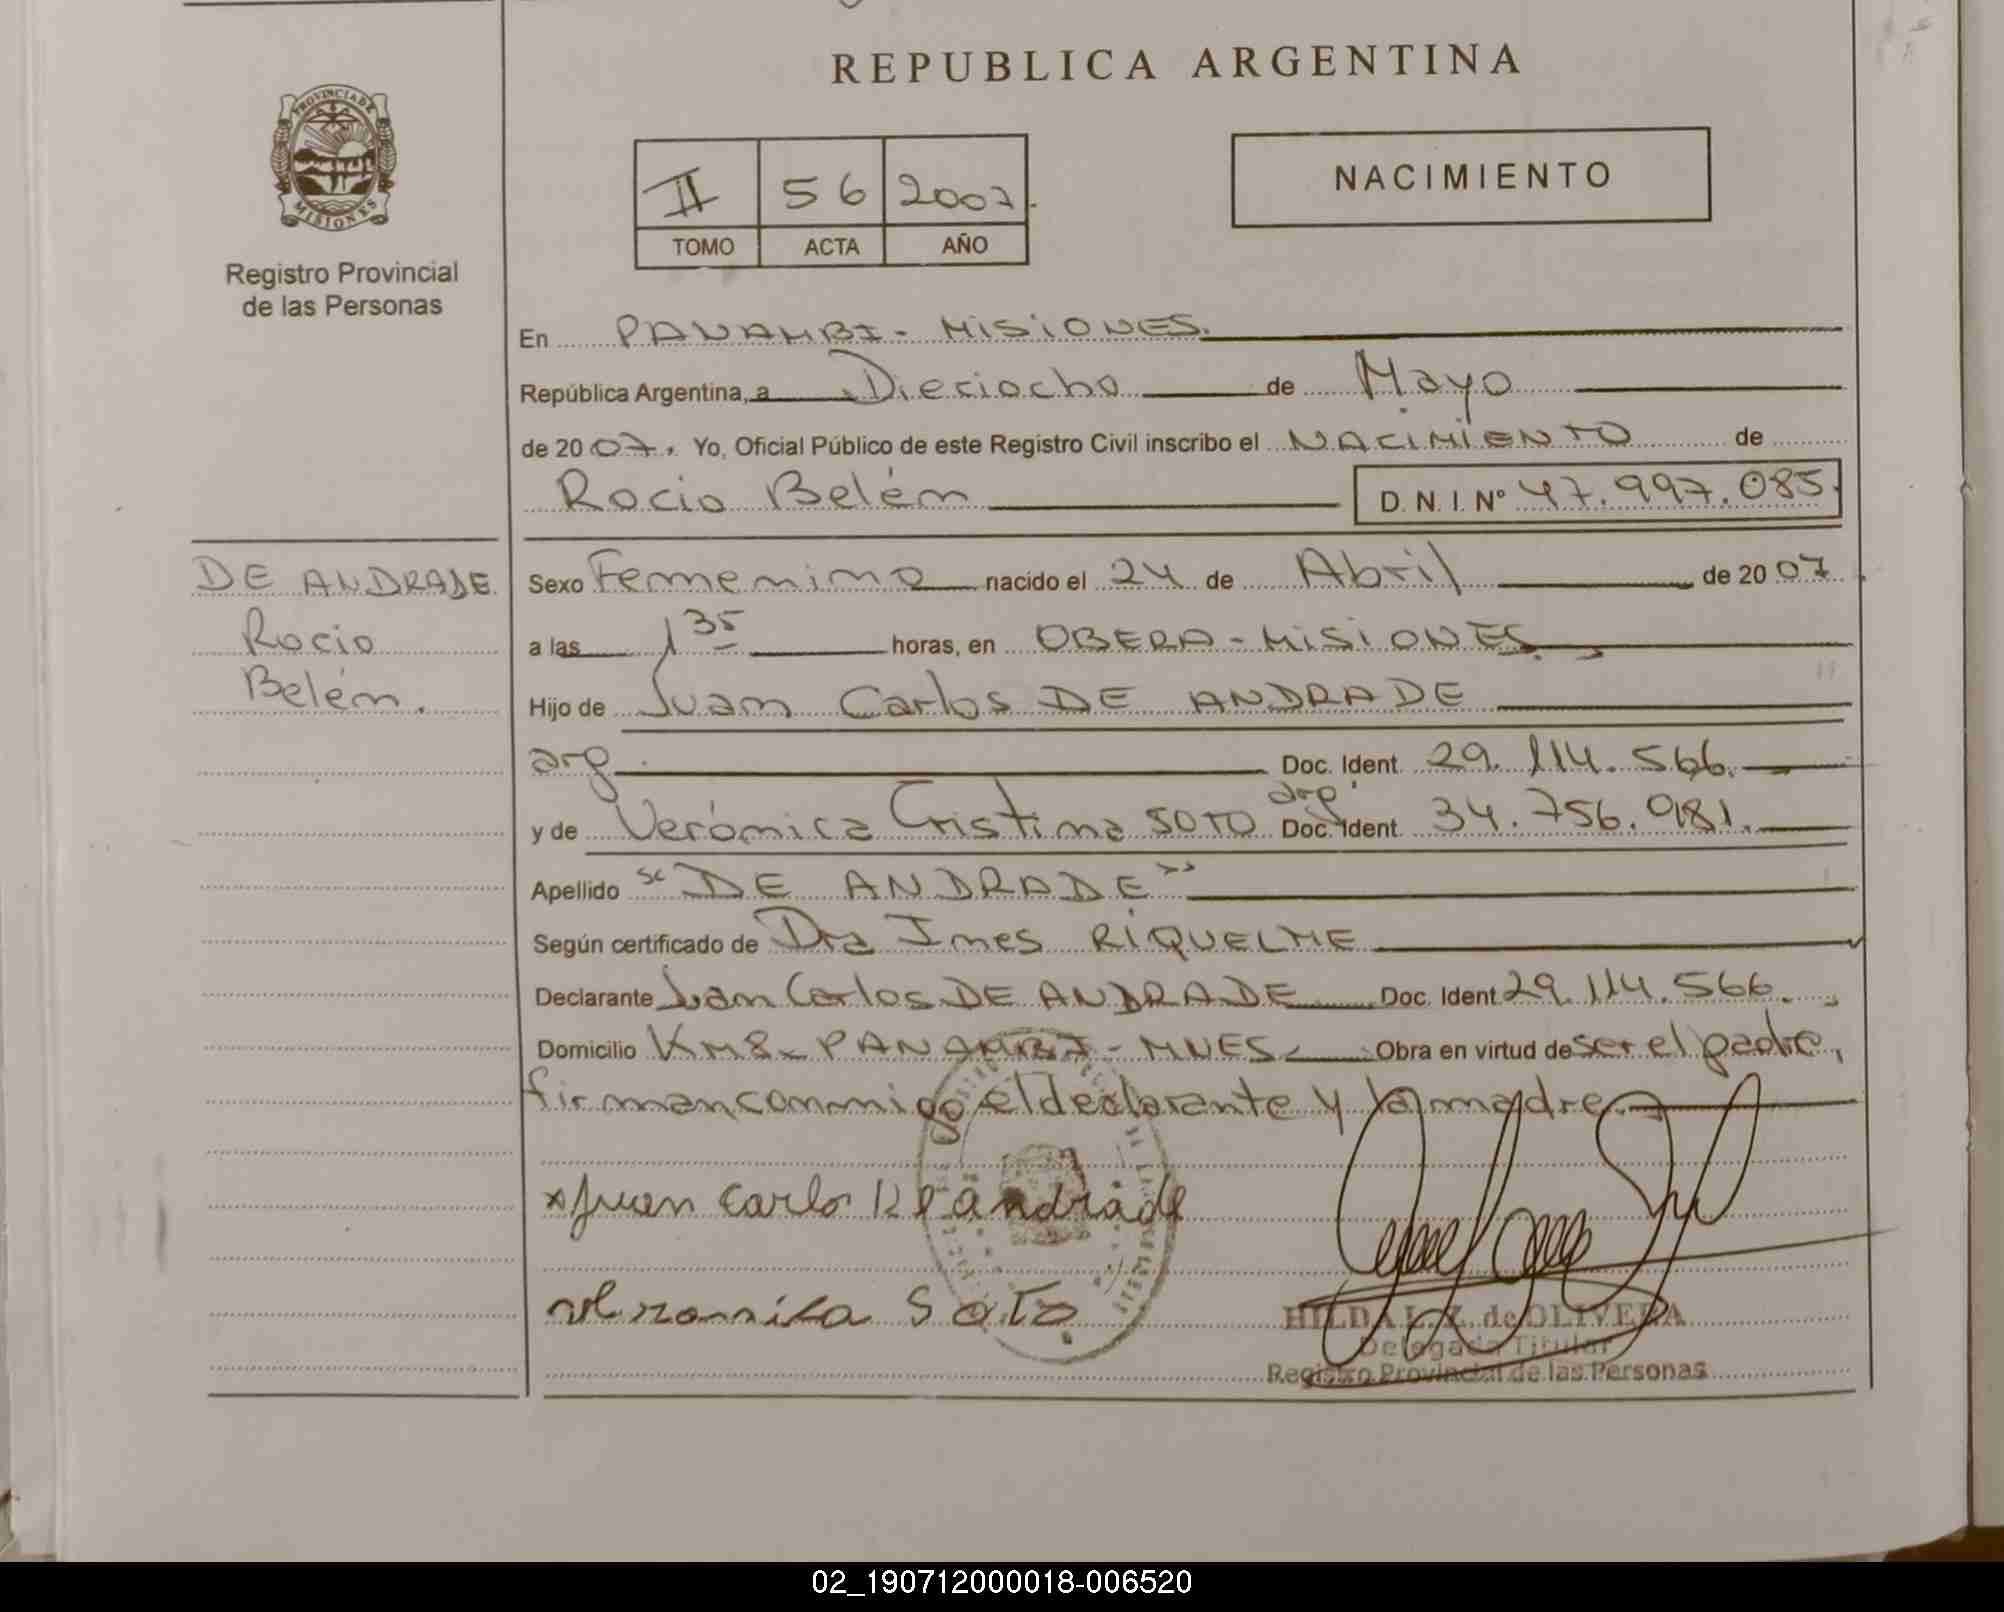 REPUBLICA ARGENTINA
PROVINCIA DE
MISIONES
Registro Provincial
de las Personas
II 56 2007.
TOMO ACTA AÑO
NACIMIENTO
En PANAMBI - MISIONES.
República Argentina, a Dieciocho de Mayo
de 2007. Yo, Oficial Público de este Registro Civil inscribo el NACIMIENTO de
Rocio Belén D. N. I. Nº 47.997.085.
DE ANDRADE
Rocio
Belén.
Sexo Femenino nacido el 24 de Abril de 2007
a las 1 35 horas, en OBERA - MISIONES.
Hijo de Juan Carlos DE ANDRADE
arg Doc. Ident. 29.114.566.
y de Verónica Cristina SOTO arg Doc. Ident. 34.756.981.
Apellido "DE ANDRADE"
Según certificado de Dra Ines RIQUELME
Declarante Juan Carlos DE ANDRADE Doc. Ident. 29.114.566.
Domicilio KM8 - PANAMBI - MNES Obra en virtud de ser el padre,
firman conmigo el declarante y la madre.
x Juan Carlo De andrade
veronica Soto
HILDA L. Z. de OLIVERA
Delegada Titular
Registro Provincial de las Personas
02_190712000018-006520